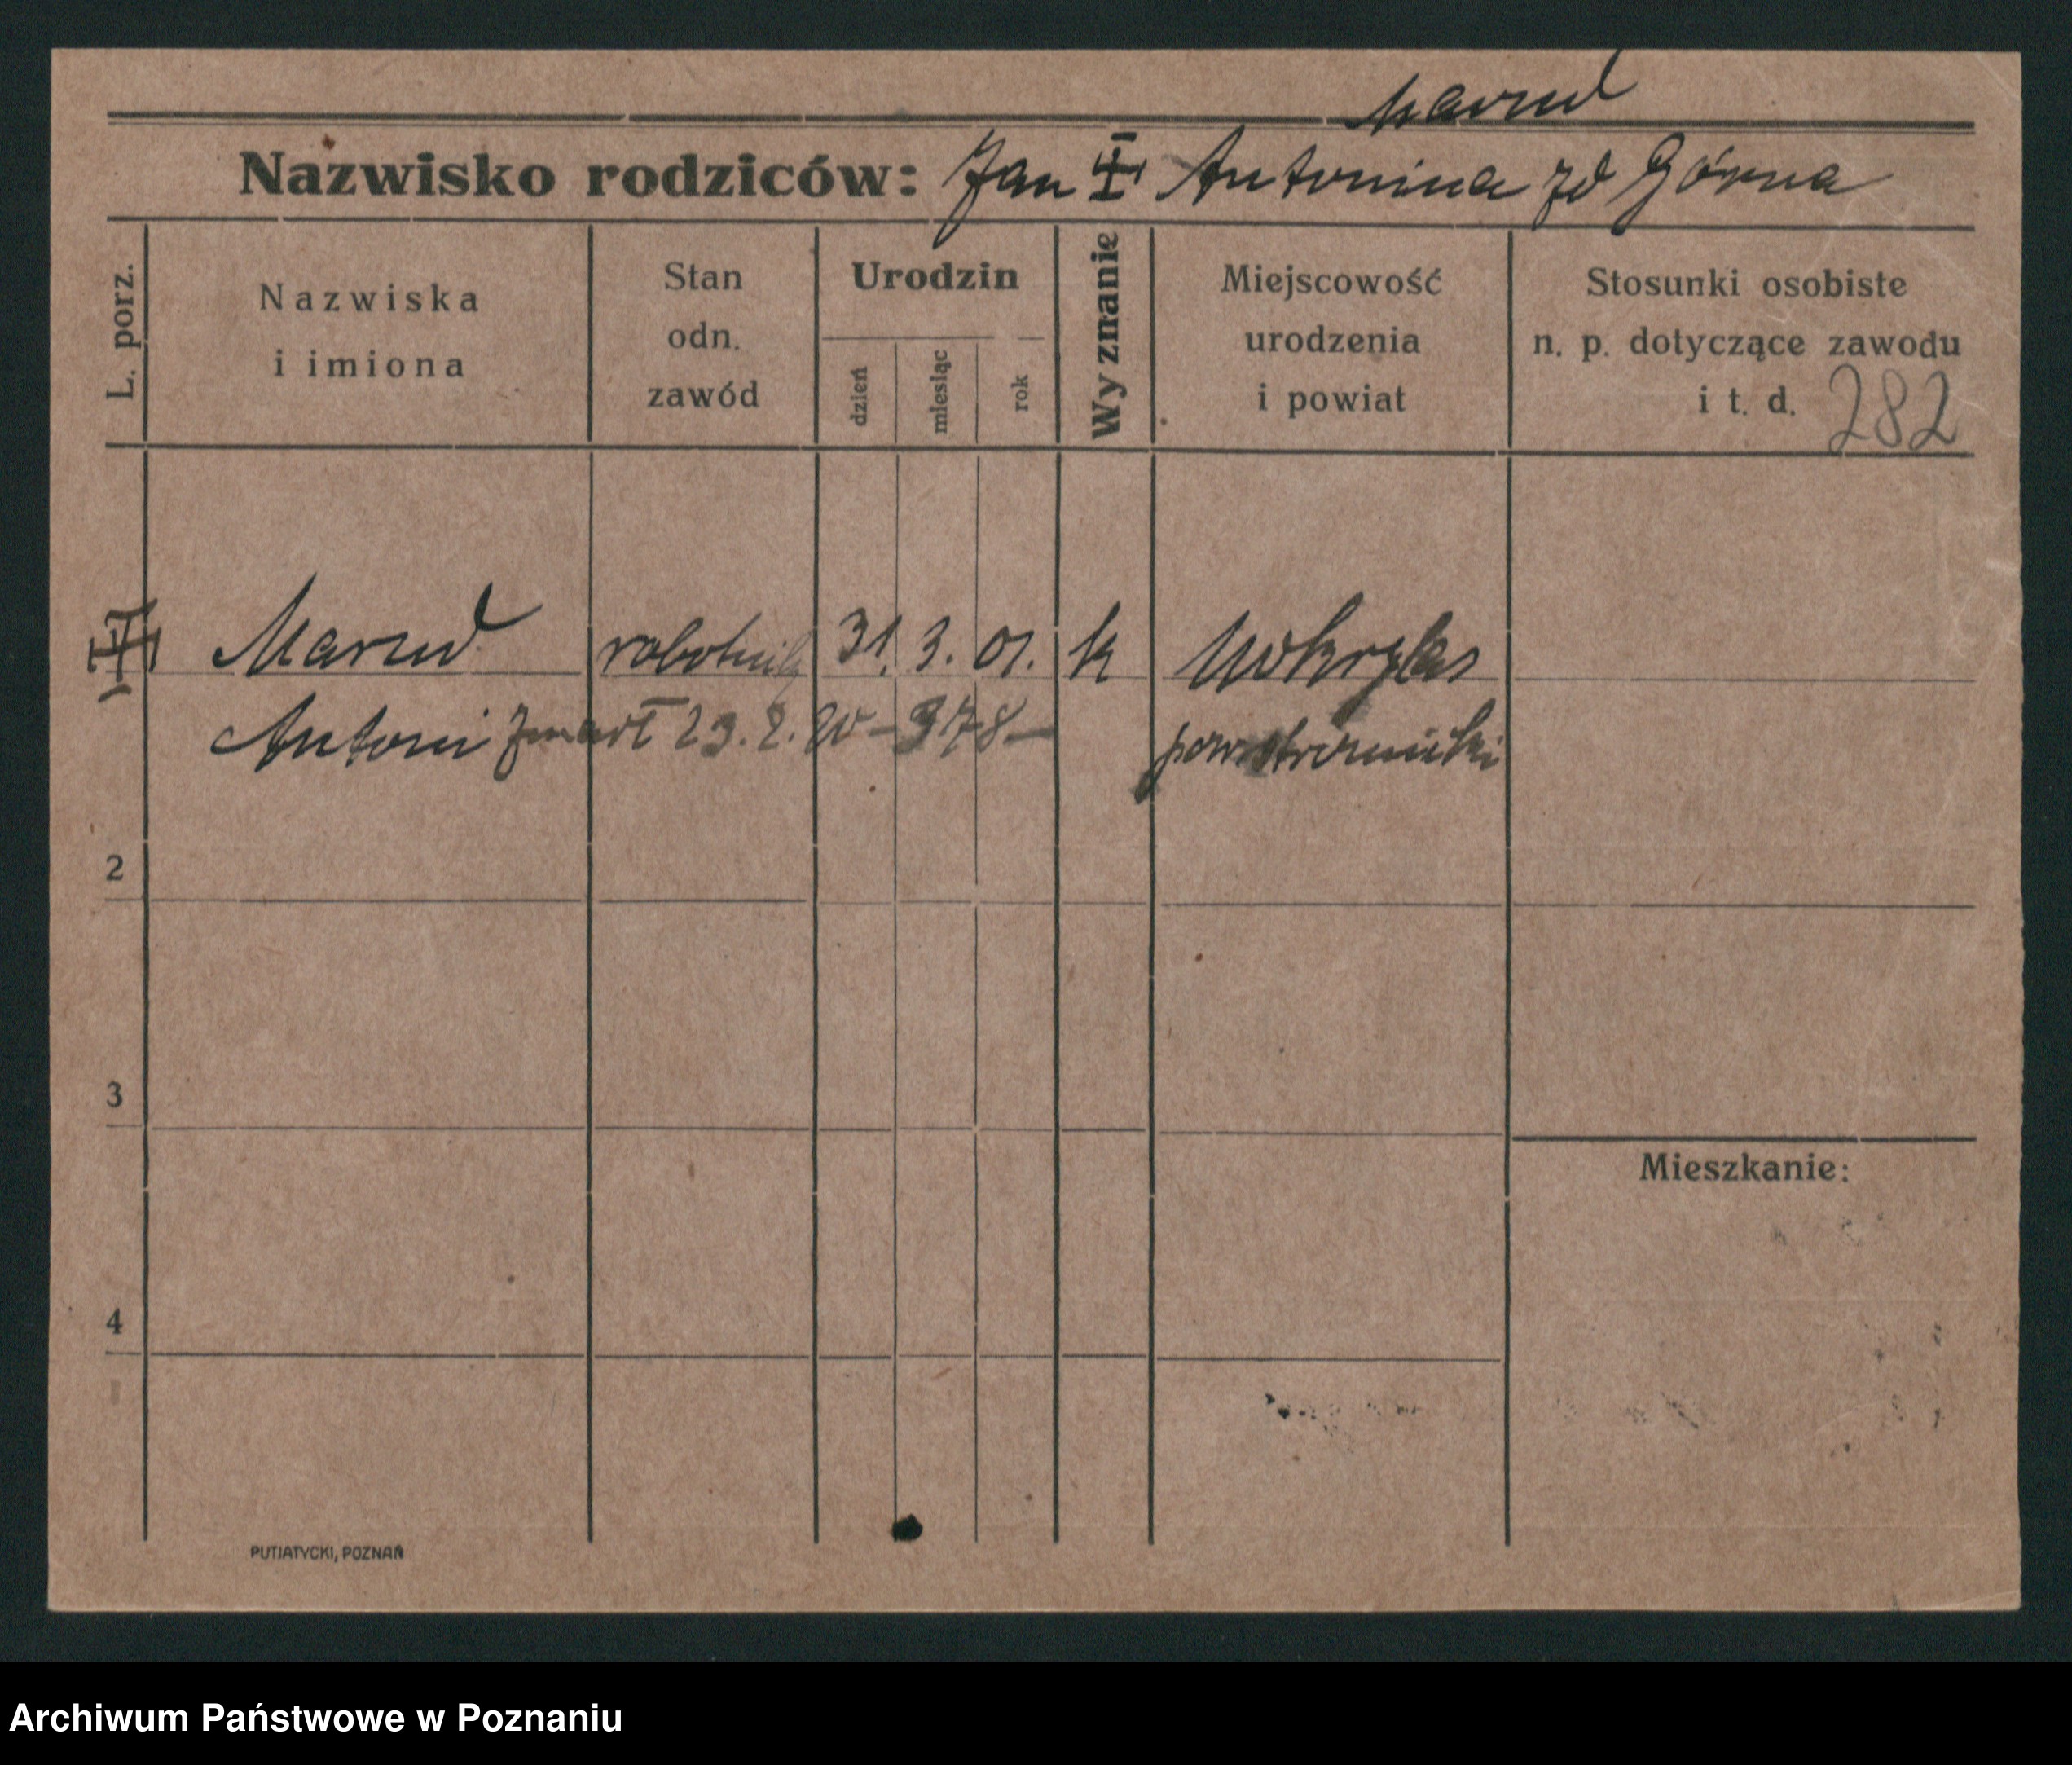 Marud
Nazwisko rodziców: Jan Antonina zd Górna
L. porz.
Nazwiska
i imiona
Stan
odn.
zawód
Urodzin
dzień
miesiąc
rok
Wyznanie
Miejscowość
urodzenia
i powiat
Stosunki osobiste
n. p. dotyczące zawodu
i t. d. 282
Marud robotnik 31. 3. 01. k
Antoni zmarł 23. 2. 20 - 378 - pow.
2
3
Mieszkanie:
4
PUTIATYCKI, POZNAŃ
Archiwum Państwowe w Poznaniu